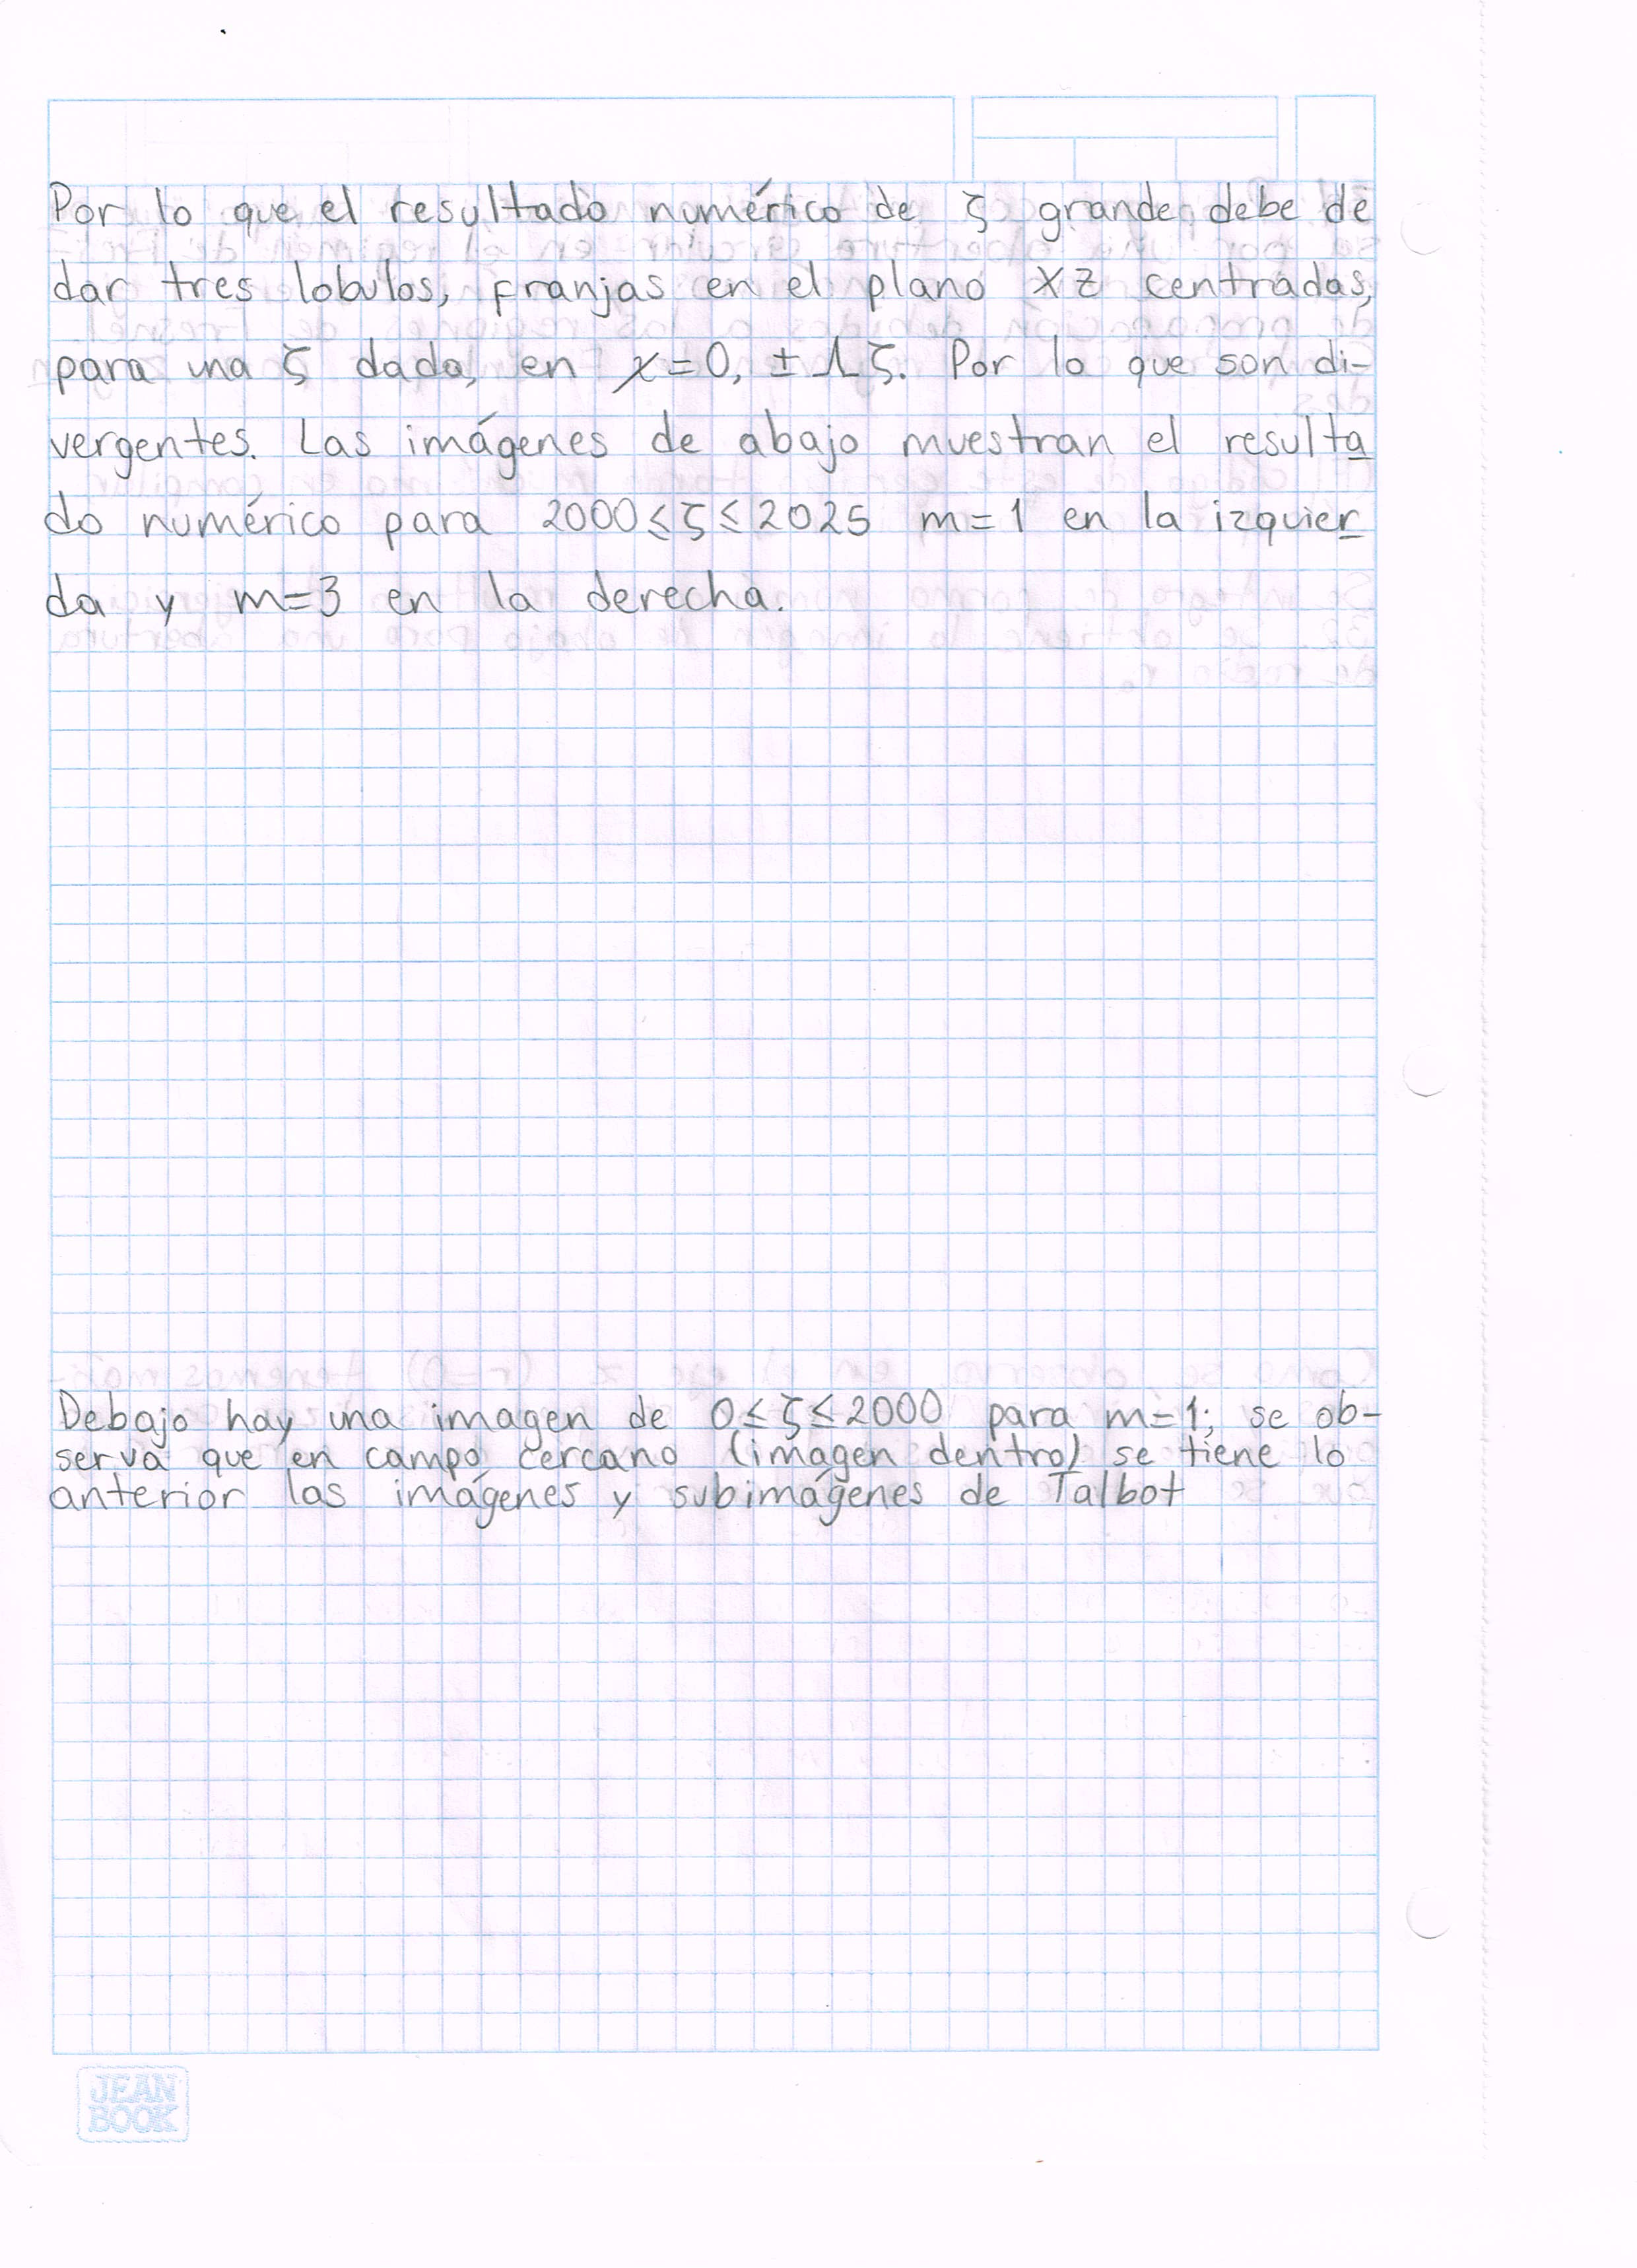 Por lo que el resultado numérico de ζ grande debe de
dar tres lobulos, franjas en el plano xz centradas,
para una ζ dada, en χ=0, ±Λζ. Por lo que son di-
vergentes. Las imágenes de abajo muestran el resulta
do numérico para 2000≤ζ≤2025 m=1 en la izquier
da y m=3 en la derecha.
Debajo hay una imagen de 0≤ζ≤2000 para m=1; se ob-
serva que en campo cercano (imagen dentro) se tiene lo
anterior las imágenes y subimágenes de Talbot
JEAN
BOOK